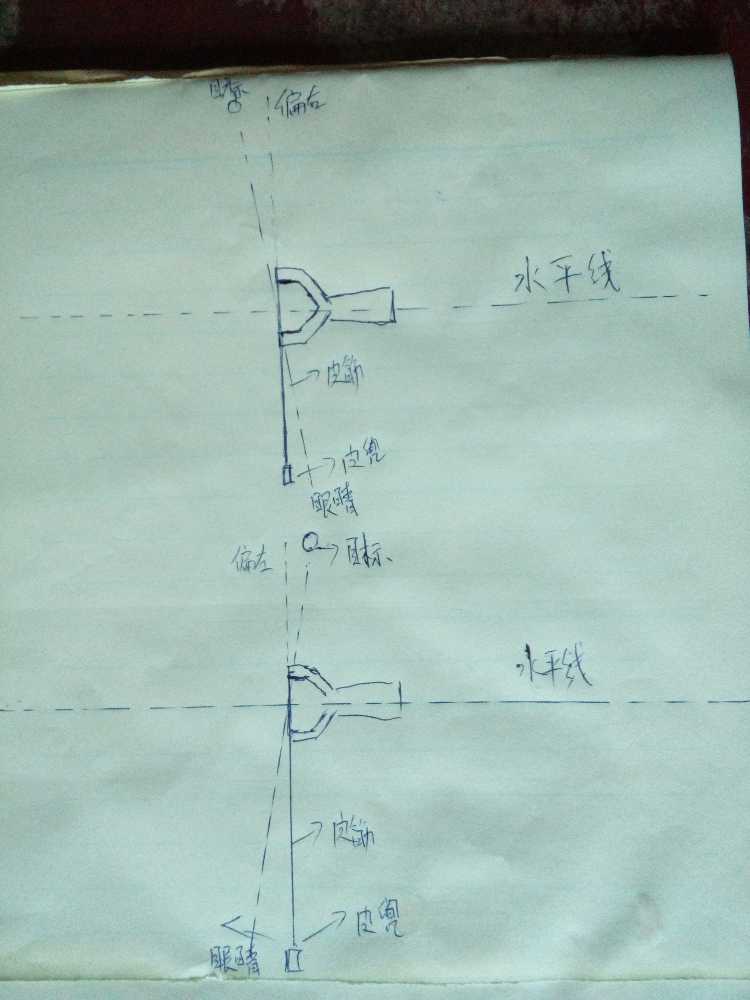 目标
偏右
水平线
皮筋
皮兜
眼睛
偏左
目标
水平线
皮筋
皮兜
眼睛